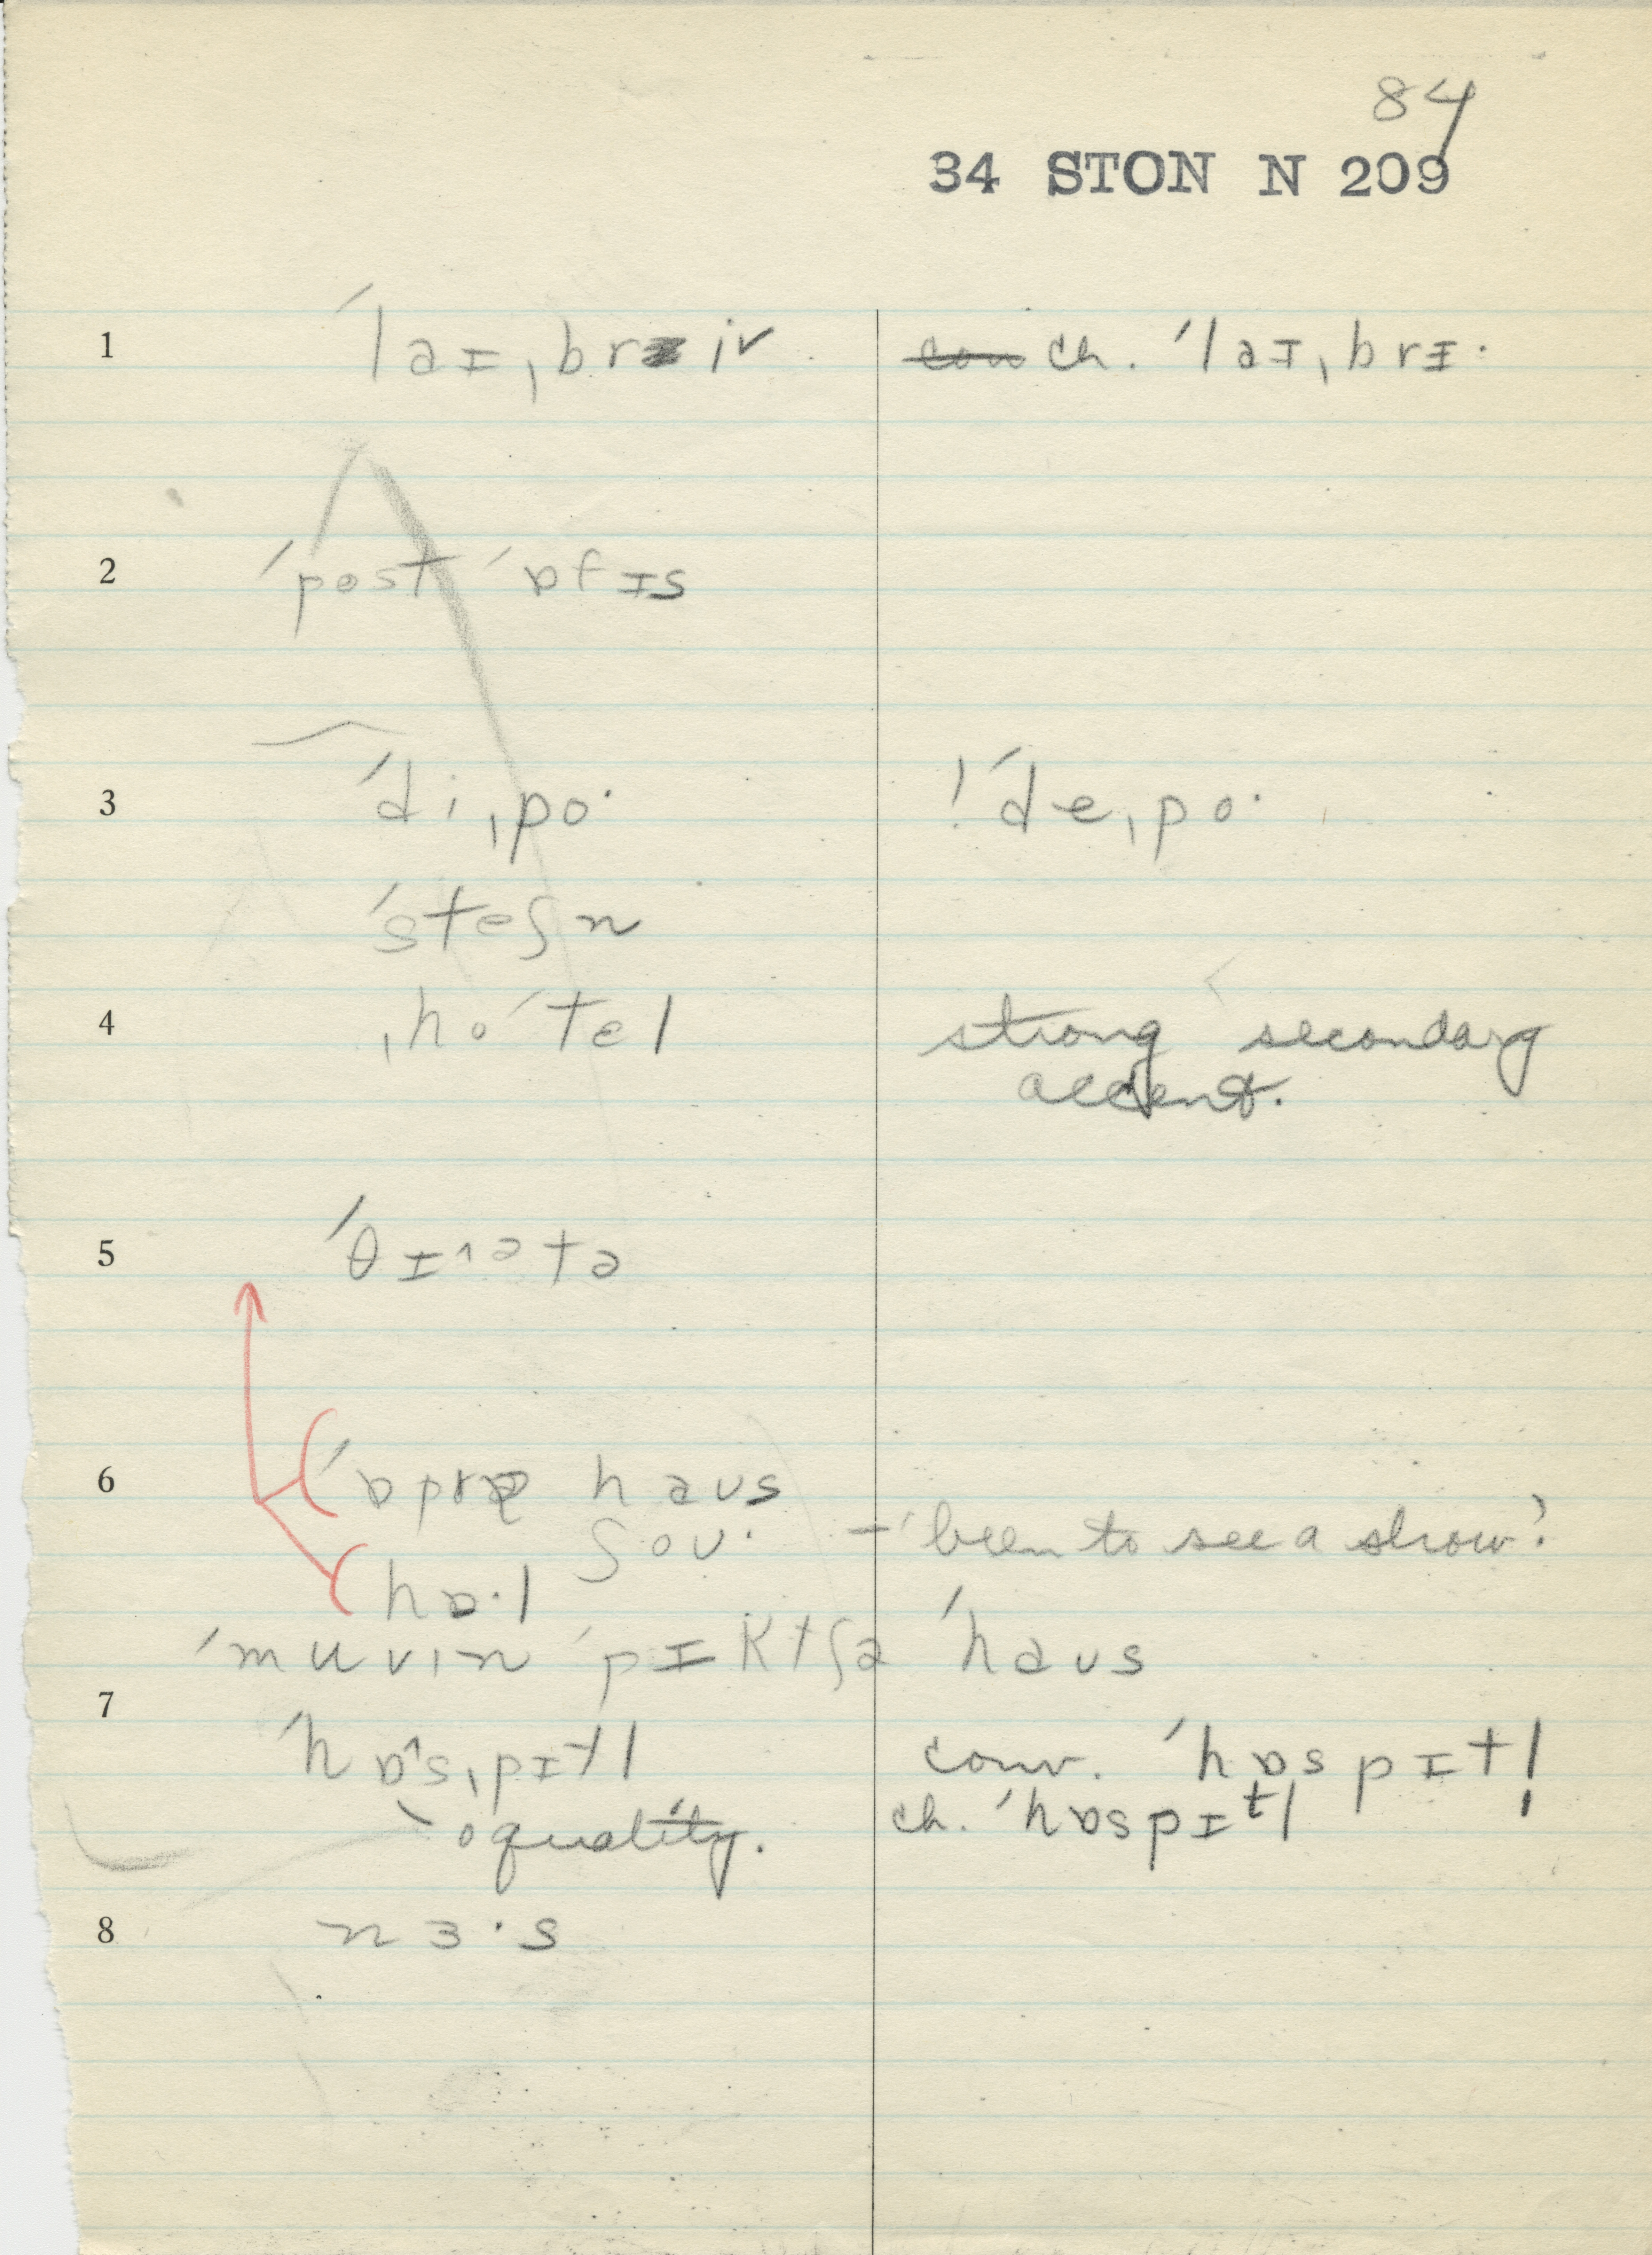 84
34 STON N 209
1 ´laɪˌbriv ch. ´laɪˌbrɪ·
2 ´post ´ɒfɪs
3 ´diˌpo· !´deˌpo·
´steʃn
4 ˌho´tel strong secondary
accent.
5 ´θɪ^ətə
6 ´ɒprə haʊs
ʃoʊ· – 'been to see a show?
hɒ·l
´muvin ´pɪktʃə ´haʊs
7
´hɒ^sˌpɪtl conv. ´hɒspɪtl̩
o quality. ch. ´hɒspɪtl
8 nɜ·s